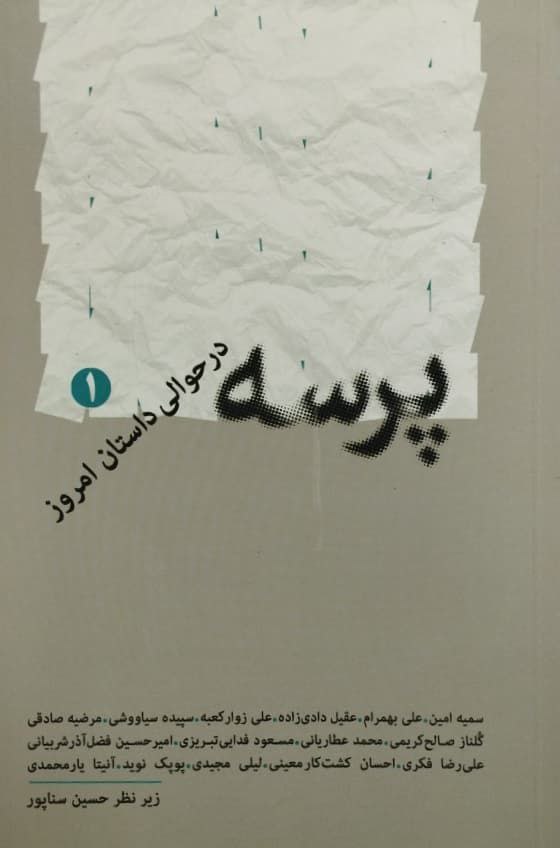 پرسه
در حوالی داستان امروز
۱
سمیه امین • علی بهمرام • عقیل دادی‌زاده • علی زوارکعبه • سپیده سیاووشی • مرضیه صادقی
گلناز صالح‌کریمی • محمد عطاریانی • مسعود فدایی‌تبریزی • امیرحسین فضل‌آذرشربیانی
علی‌رضا فکری • احسان کشت‌کارمعینی • لیلی مجیدی • پوپک نوید • آنیتا یارمحمدی
زیر نظر حسین سناپور